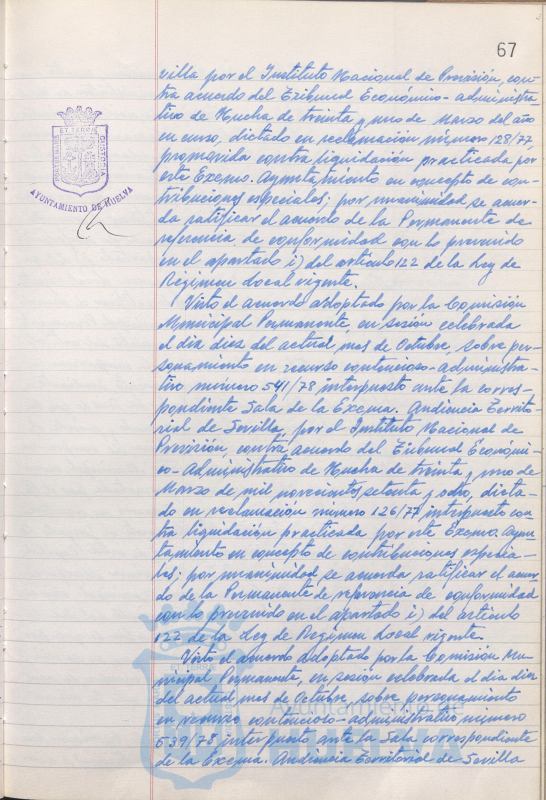 67
villa por el Instituto Nacional de Previsión, con-
tra acuerdo del Tribunal Económico-administra-
tivo de Huelva de treinta y uno de Marzo del año
en curso, dictado en reclamación número 128/77,
promovida contra liquidación practicada por
este Excmo. Ayuntamiento en concepto de con-
tribuciones especiales; por unanimidad se acuer-
da ratificar el acuerdo de la Permanente de
referencia de conformidad con lo prevenido
en el apartado i) del artículo 122 de la Ley de
Régimen Local vigente.
Visto el acuerdo adoptado por la Comisión
Municipal Permanente, en sesión celebrada
el día diez del actual mes de Octubre, sobre per-
sonamiento en recurso contencioso-administra-
tivo número 541/78 interpuesto ante la corres-
pondiente Sala de la Excma. Audiencia Territo-
rial de Sevilla, por el Instituto Nacional de
Previsión, contra acuerdo del Tribunal Económi-
co-Administrativo de Huelva de treinta y uno de
Marzo de mil novecientos setenta y ocho, dicta-
do en reclamación número 126/77 interpuesto con-
tra liquidación practicada por este Excmo. Ayun-
tamiento en concepto de contribuciones especia-
les; por unanimidad se acuerda ratificar el acuer-
do de la Permanente de referencia de conformidad
con lo prevenido en el apartado i) del artículo
122 de la Ley de Regimen Local vigente.
Visto el acuerdo adoptado por la Comisión Mu-
nicipal Permanente, en sesión celebrada el día diez
del actual mes de Octubre, sobre personamiento
en recurso contencioso-administrativo número
539/78 interpuesto ante la Sala correspondiente
de la Excma. Audiencia Territorial de Sevilla
AYUNTAMIENTO DE HUELVA
Ayuntamiento de
HUELVA